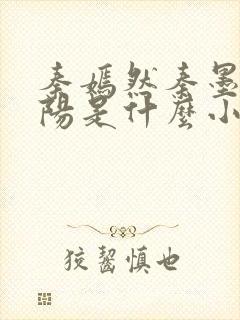 秦嫣然秦墨
陽是什麼小
狡齧慎也